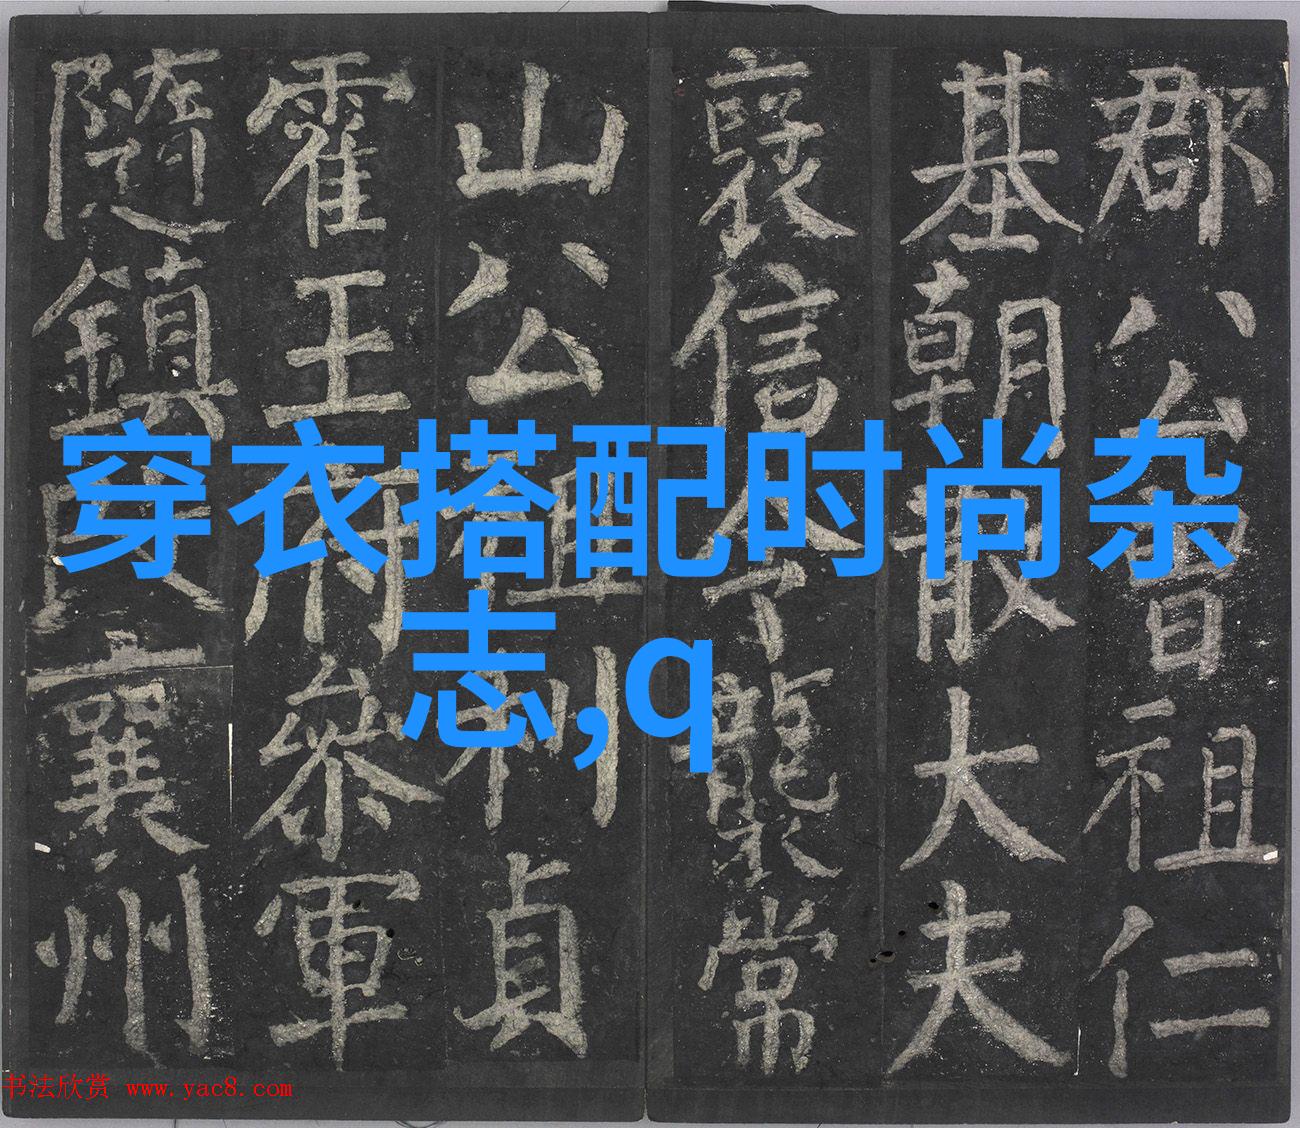 郡公曾祖仁
基朝散大夫
襃信令襲常
山公祖利貞
霍王府參軍
隨鎮 襄州
穿衣搭配时尚杂
志,q
书法欣赏 www.yac8.com